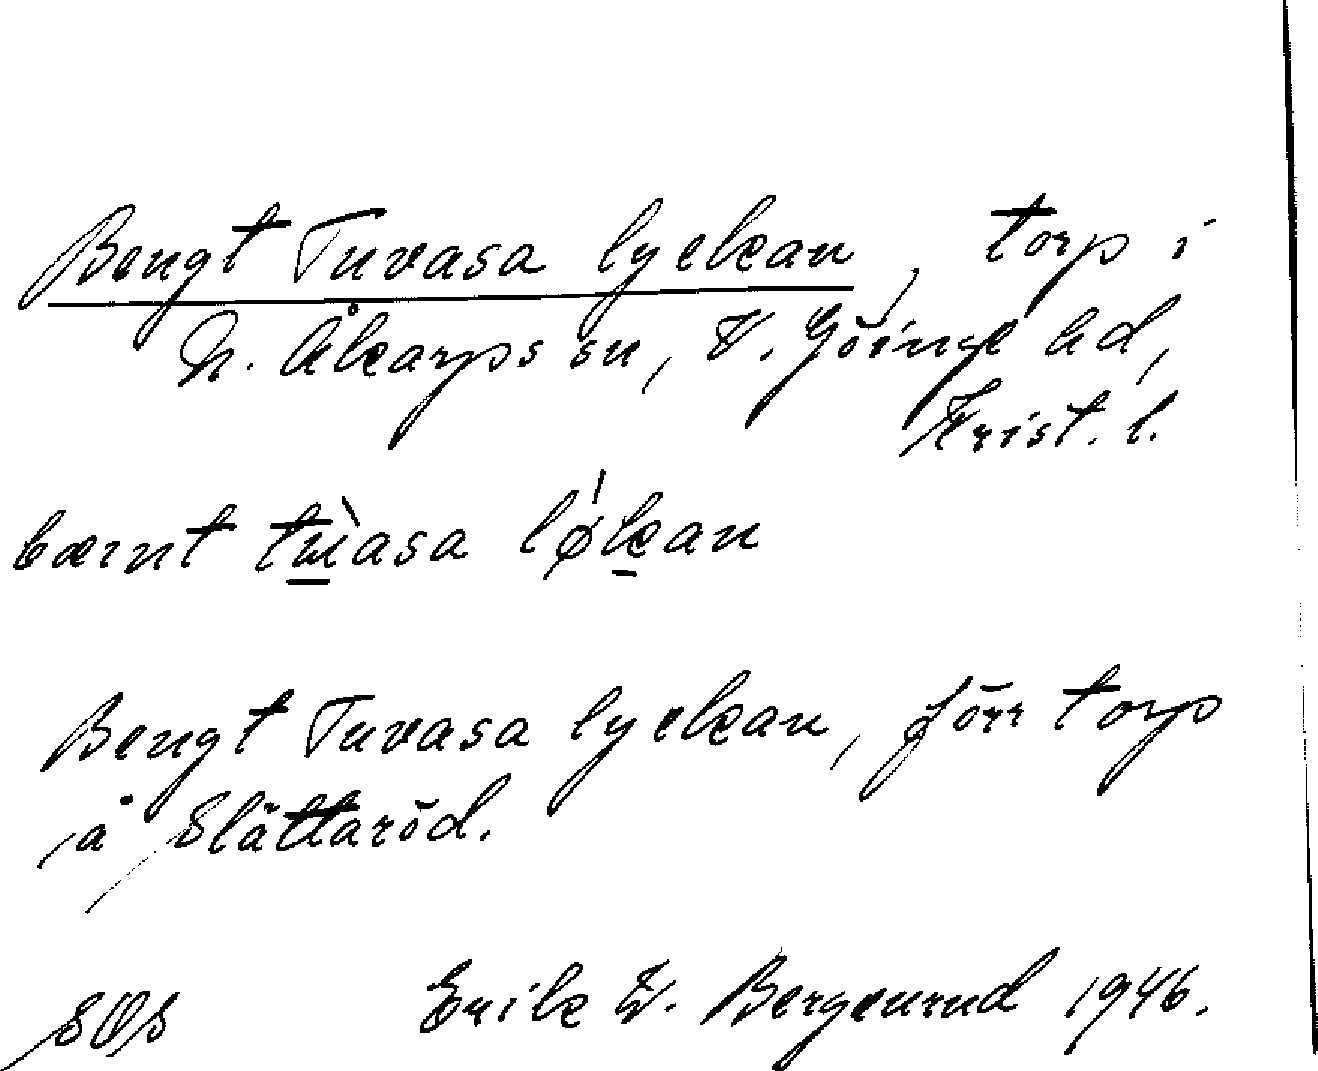 Bengt Tuvasa lyckan, torp i
N. Åkarps sn, V. Göinge hd,
Krist. l.
bæŋt tɯ̀asa lǿkan
Bengt Tuvasa lyckan, förr torp
å Slättaröd.
SOS
Erik W. Bergenrud 1946.